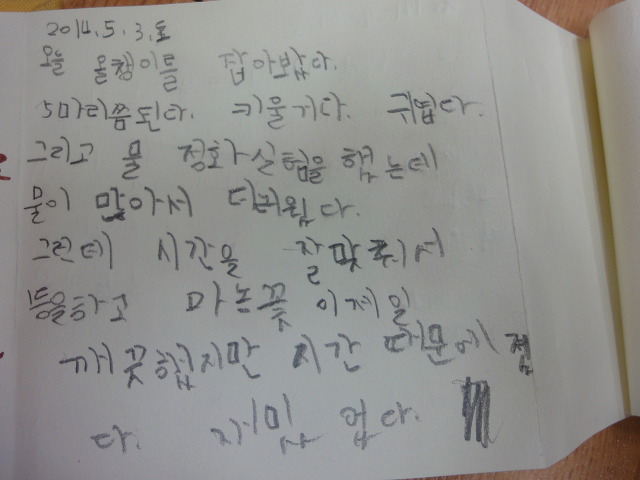 2014.5.3.토
오늘 올챙이를 잡아밨다.
5마리쯤된다. 키울거다. 귀엽다.
그리고 물 정화실험을 했는데
물이 많아서 더러웠다.
그런데 시간을 잘맞춰서
등을하고 마는꽃 이제일
깨꿋했지만 시간 때문에 졌
다. 재미 업다.